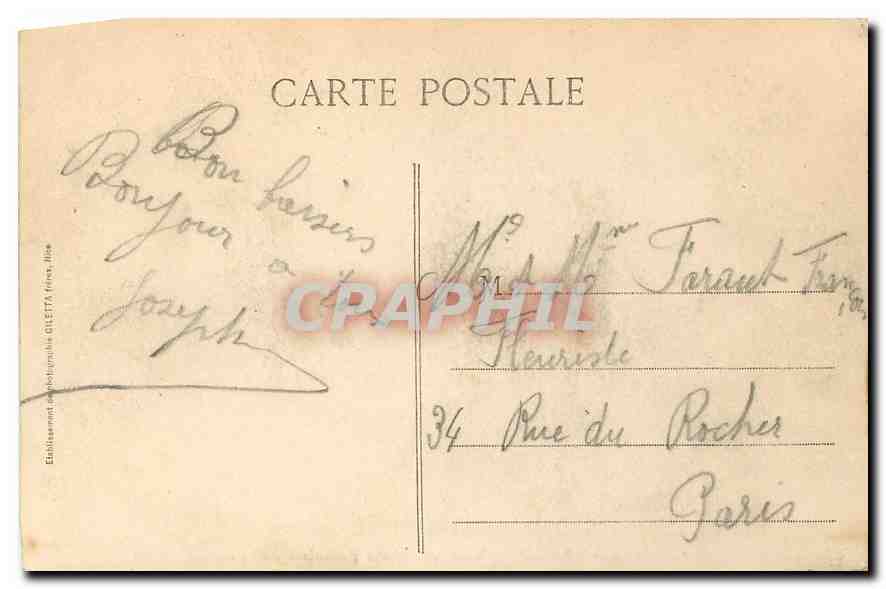 CARTE POSTALE
Bon baisers
Bonjour
a tous
Joseph
Etablissement de photographie GILETTA frères, Nice
CPAPHIL
M
Mr et Mme Faraut François
Fleuriste
34 Rue du Rocher
Paris